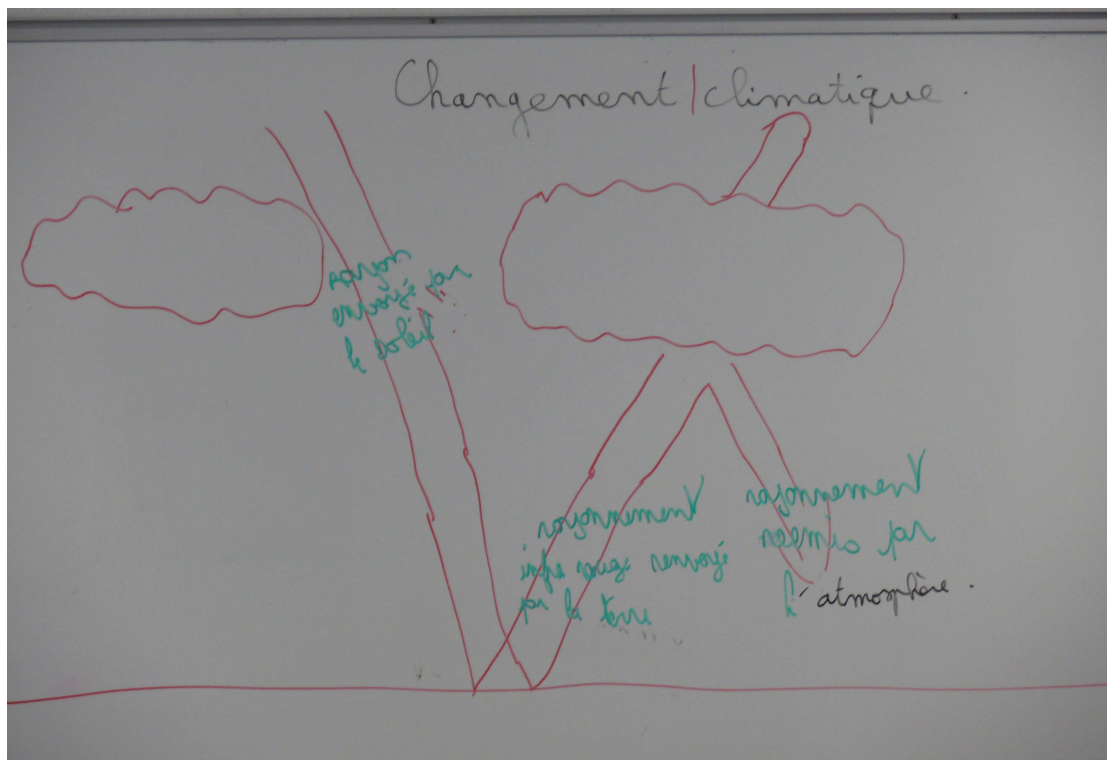 Changement climatique.
rayon
envoyé par
le soleil
rayonnement
infra rouge renvoyé
par la terre
rayonnement
réémis par
l'atmosphère.